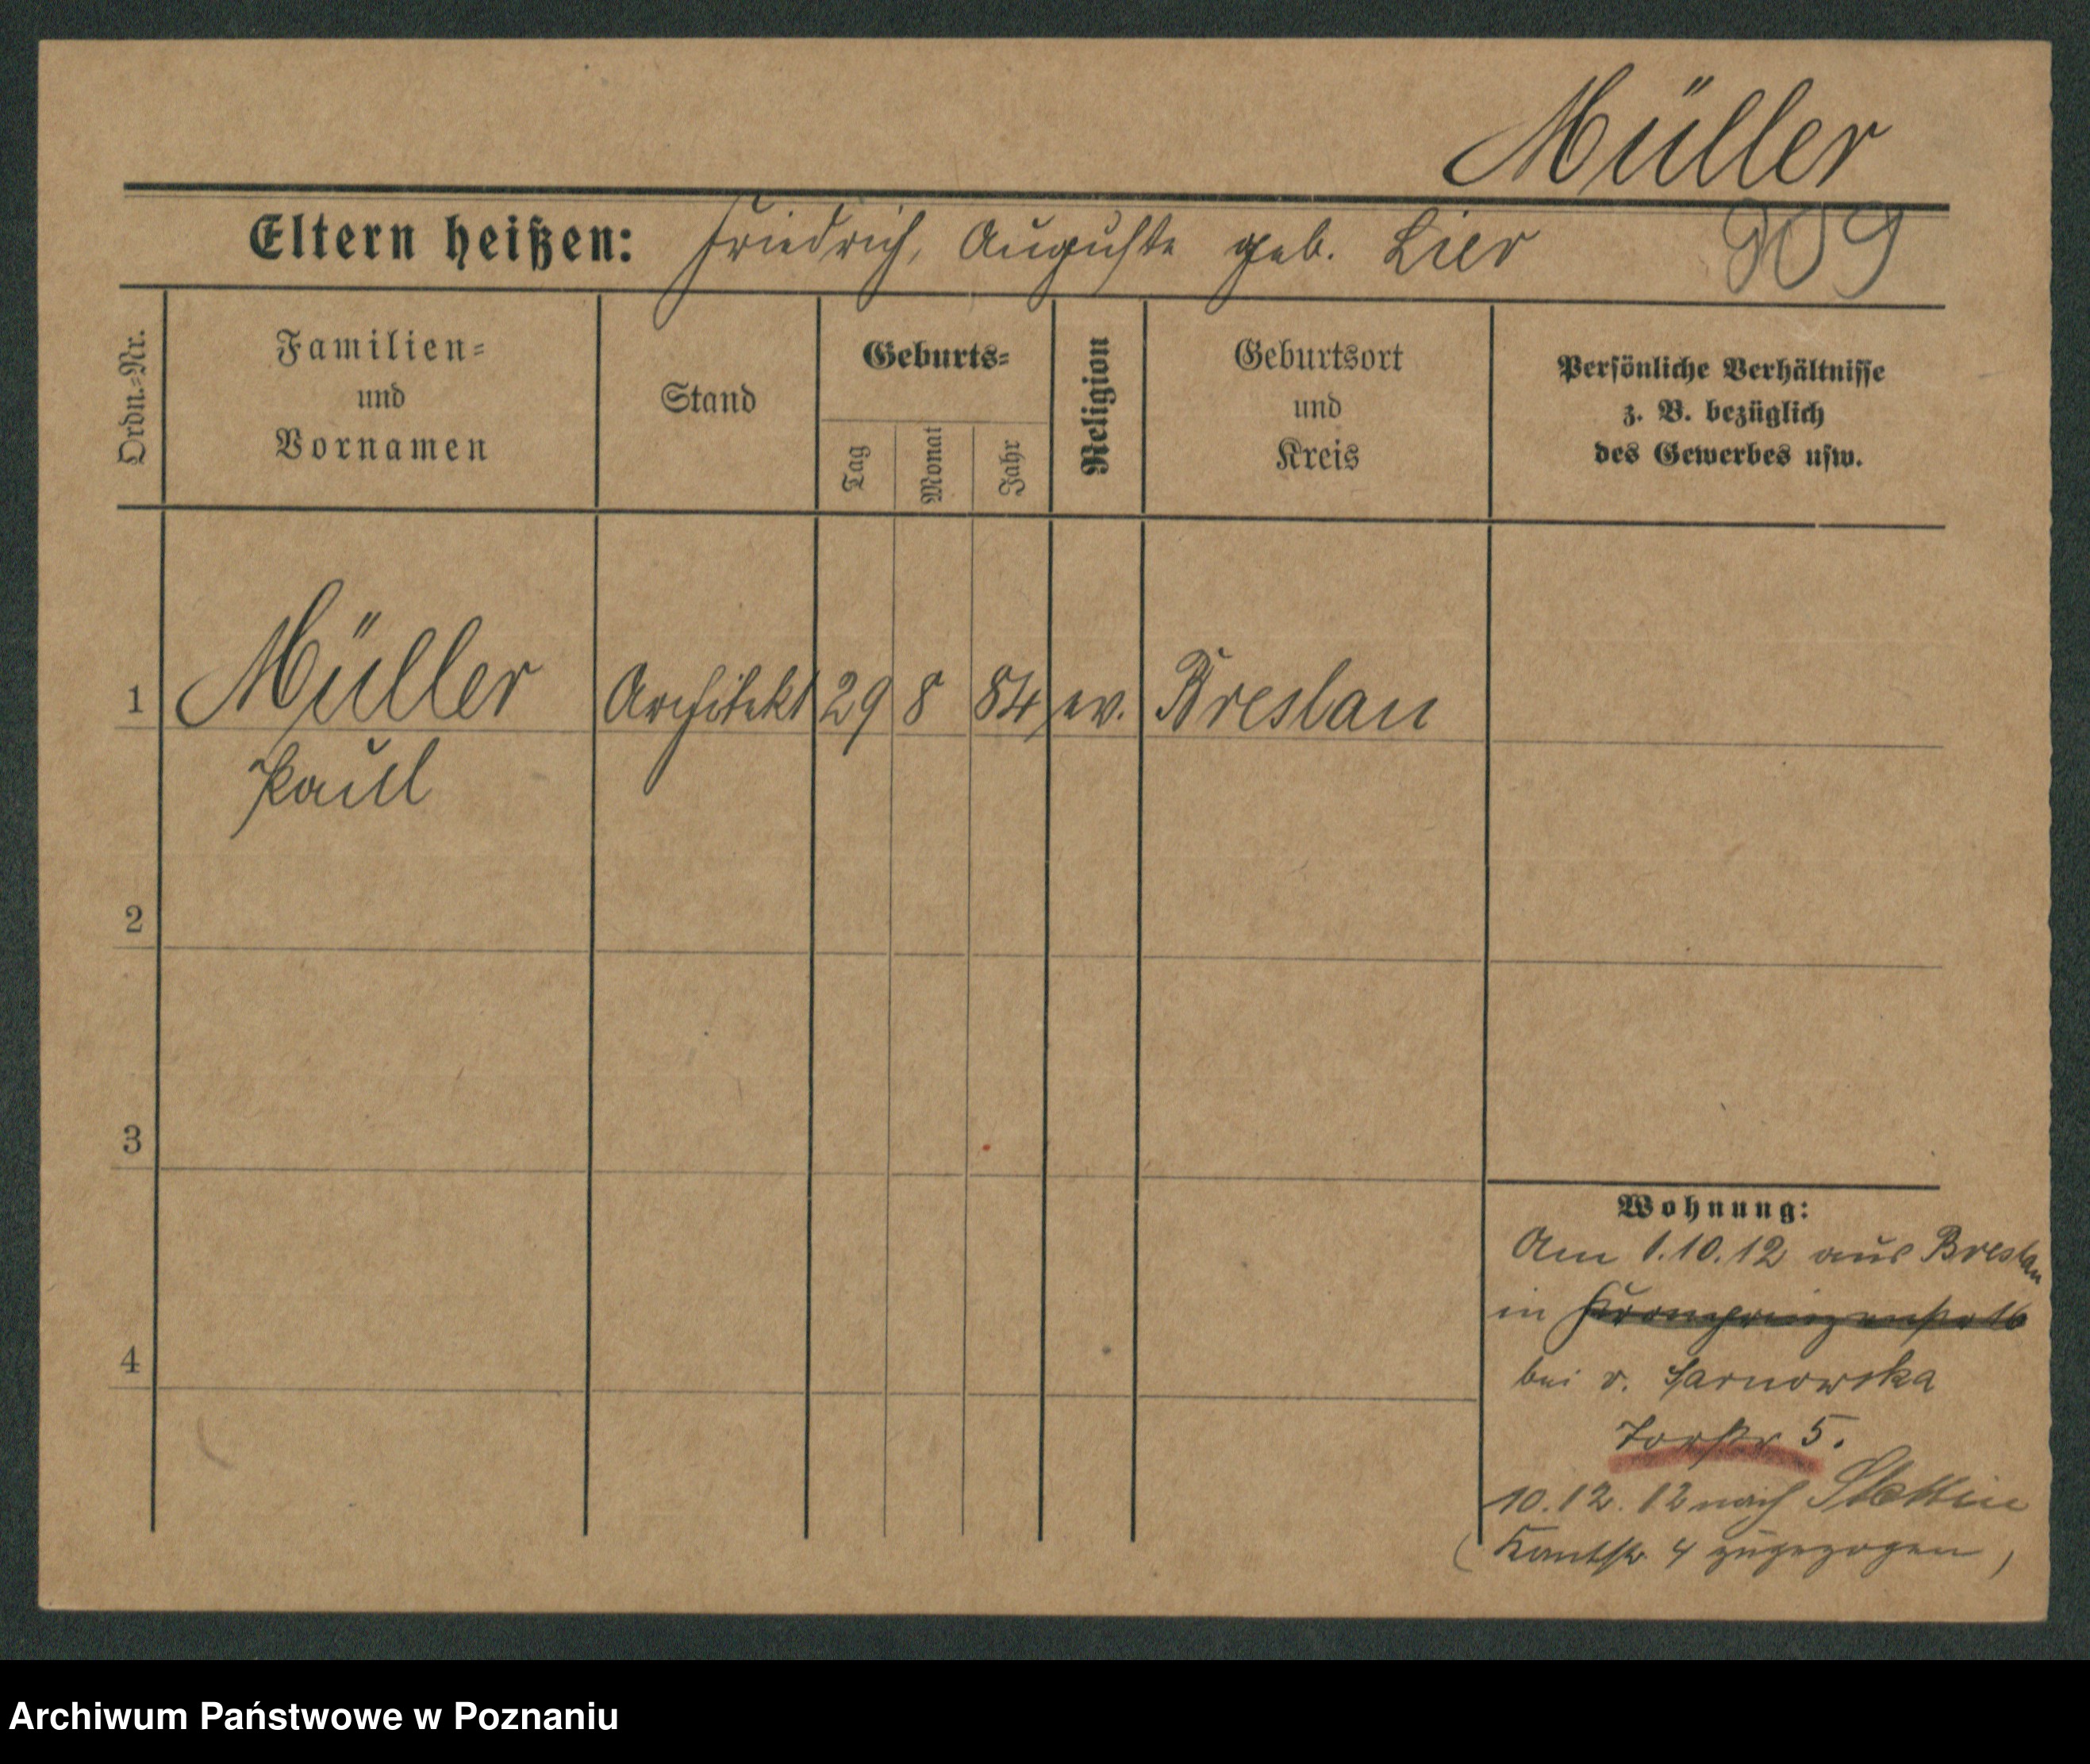 Müller
Eltern heißen: Friedrich, Auguste geb. Lier 909
Ordn.-Nr.
Familien-
und
Vornamen
Stand
Geburts-
Tag
Monat
Jahr
Religion
Geburtsort
und
Kreis
Persönliche Verhältnisse
z. B. bezüglich
des Gewerbes usw.
1 Müller Architekt 29 8 84 ev. Breslau
Paul
2
3
4
Wohnung:
Am 1.10.12 aus Breslau
in Kronprinzenstr 16
bei v. Sarnowska
Torstr 5.
10.12.12 nach Stettin
(Kantstr. 4 zugezogen)
Archiwum Państwowe w Poznaniu